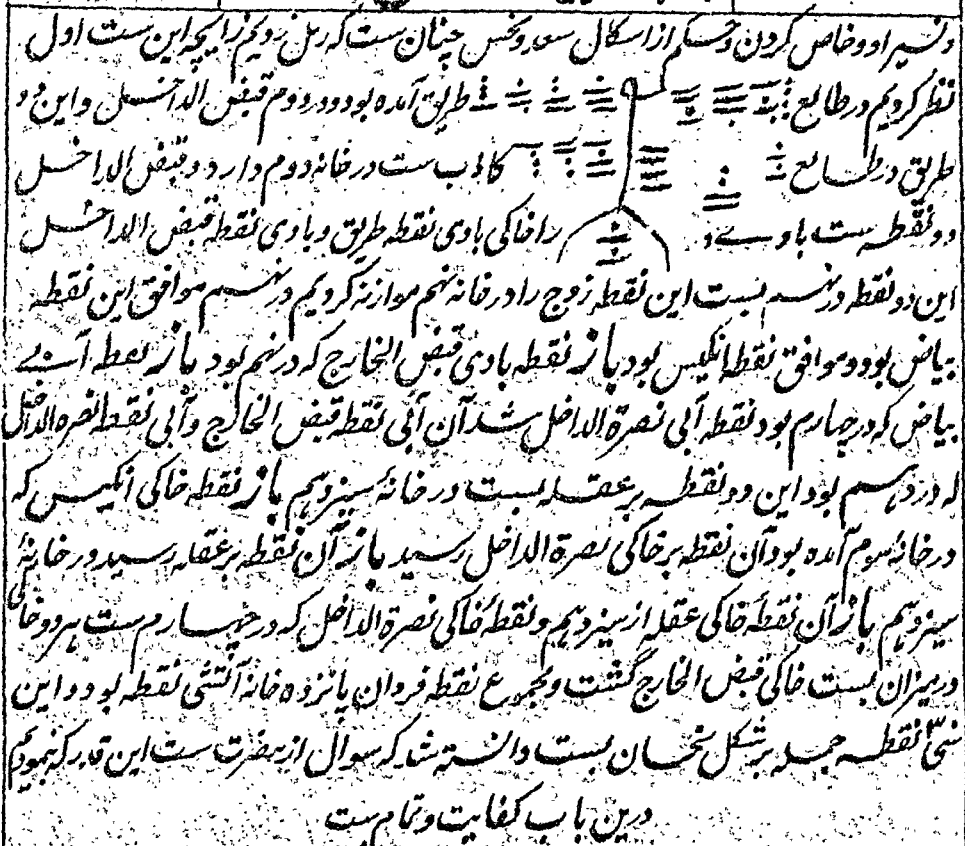 و سیر او و خاص کردن و حکم از اشکال سعد و نحس چنان ست که رمل زدیم زایچه این ست اول
نظر کردیم در طالع طریق آمده بود و در دوم قبض الداخل و این دو
طریق در طالع کاذب ست در خانه دوم دارد و قبض الداخل
دو نقطه ست بادی و را خاکی بادی نقطه طریق و بادی نقطه قبض الداخل
این دو نقطه در نهم بست این نقطه زوج را در خانه نهم موازنه کردیم در نهم موافق این نقطه
بیاض بود و موافق نقطه انکیس بود باز نقطه بادی قبض الخارج که در نهم بود باز نقطه آبی
بیاض که در چهارم بود نقطه آبی نصرة الداخل شد آن آبی نقطه قبض الخارج و آبی نقطه نصرة الداخل
که در دهم بود این دو نقطه بر عقله بست در خانه سیزدهم باز نقطه خاکی انکیس که
در خانه سوم آمده بود آن نقطه بر خاکی نصرة الداخل رسید باز آن نقطه بر عقله رسید در خانهٔ
سیزدهم باز آن نقطهٔ خاکی عقله از سیزدهم و نقطهٔ خاکی نصرة الداخل که در چهارم ست هر دو خاکی
در میزان بست خاکی قبض الخارج گشت و مجموع نقطه فردان پانزده خانه آتشی نقطه بود و این
سی نقطه جمله بر شکل بست دانسته شد که سوال از مضرت ست این قدر که نمودیم
درین باب کفایت و تمام ست